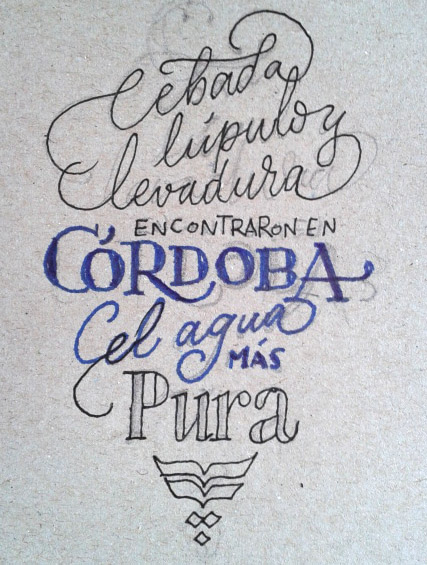 Cebada
lúpulo y
levadura
ENCONTRARON EN
CÓRDOBA
el agua
MÁS
Pura